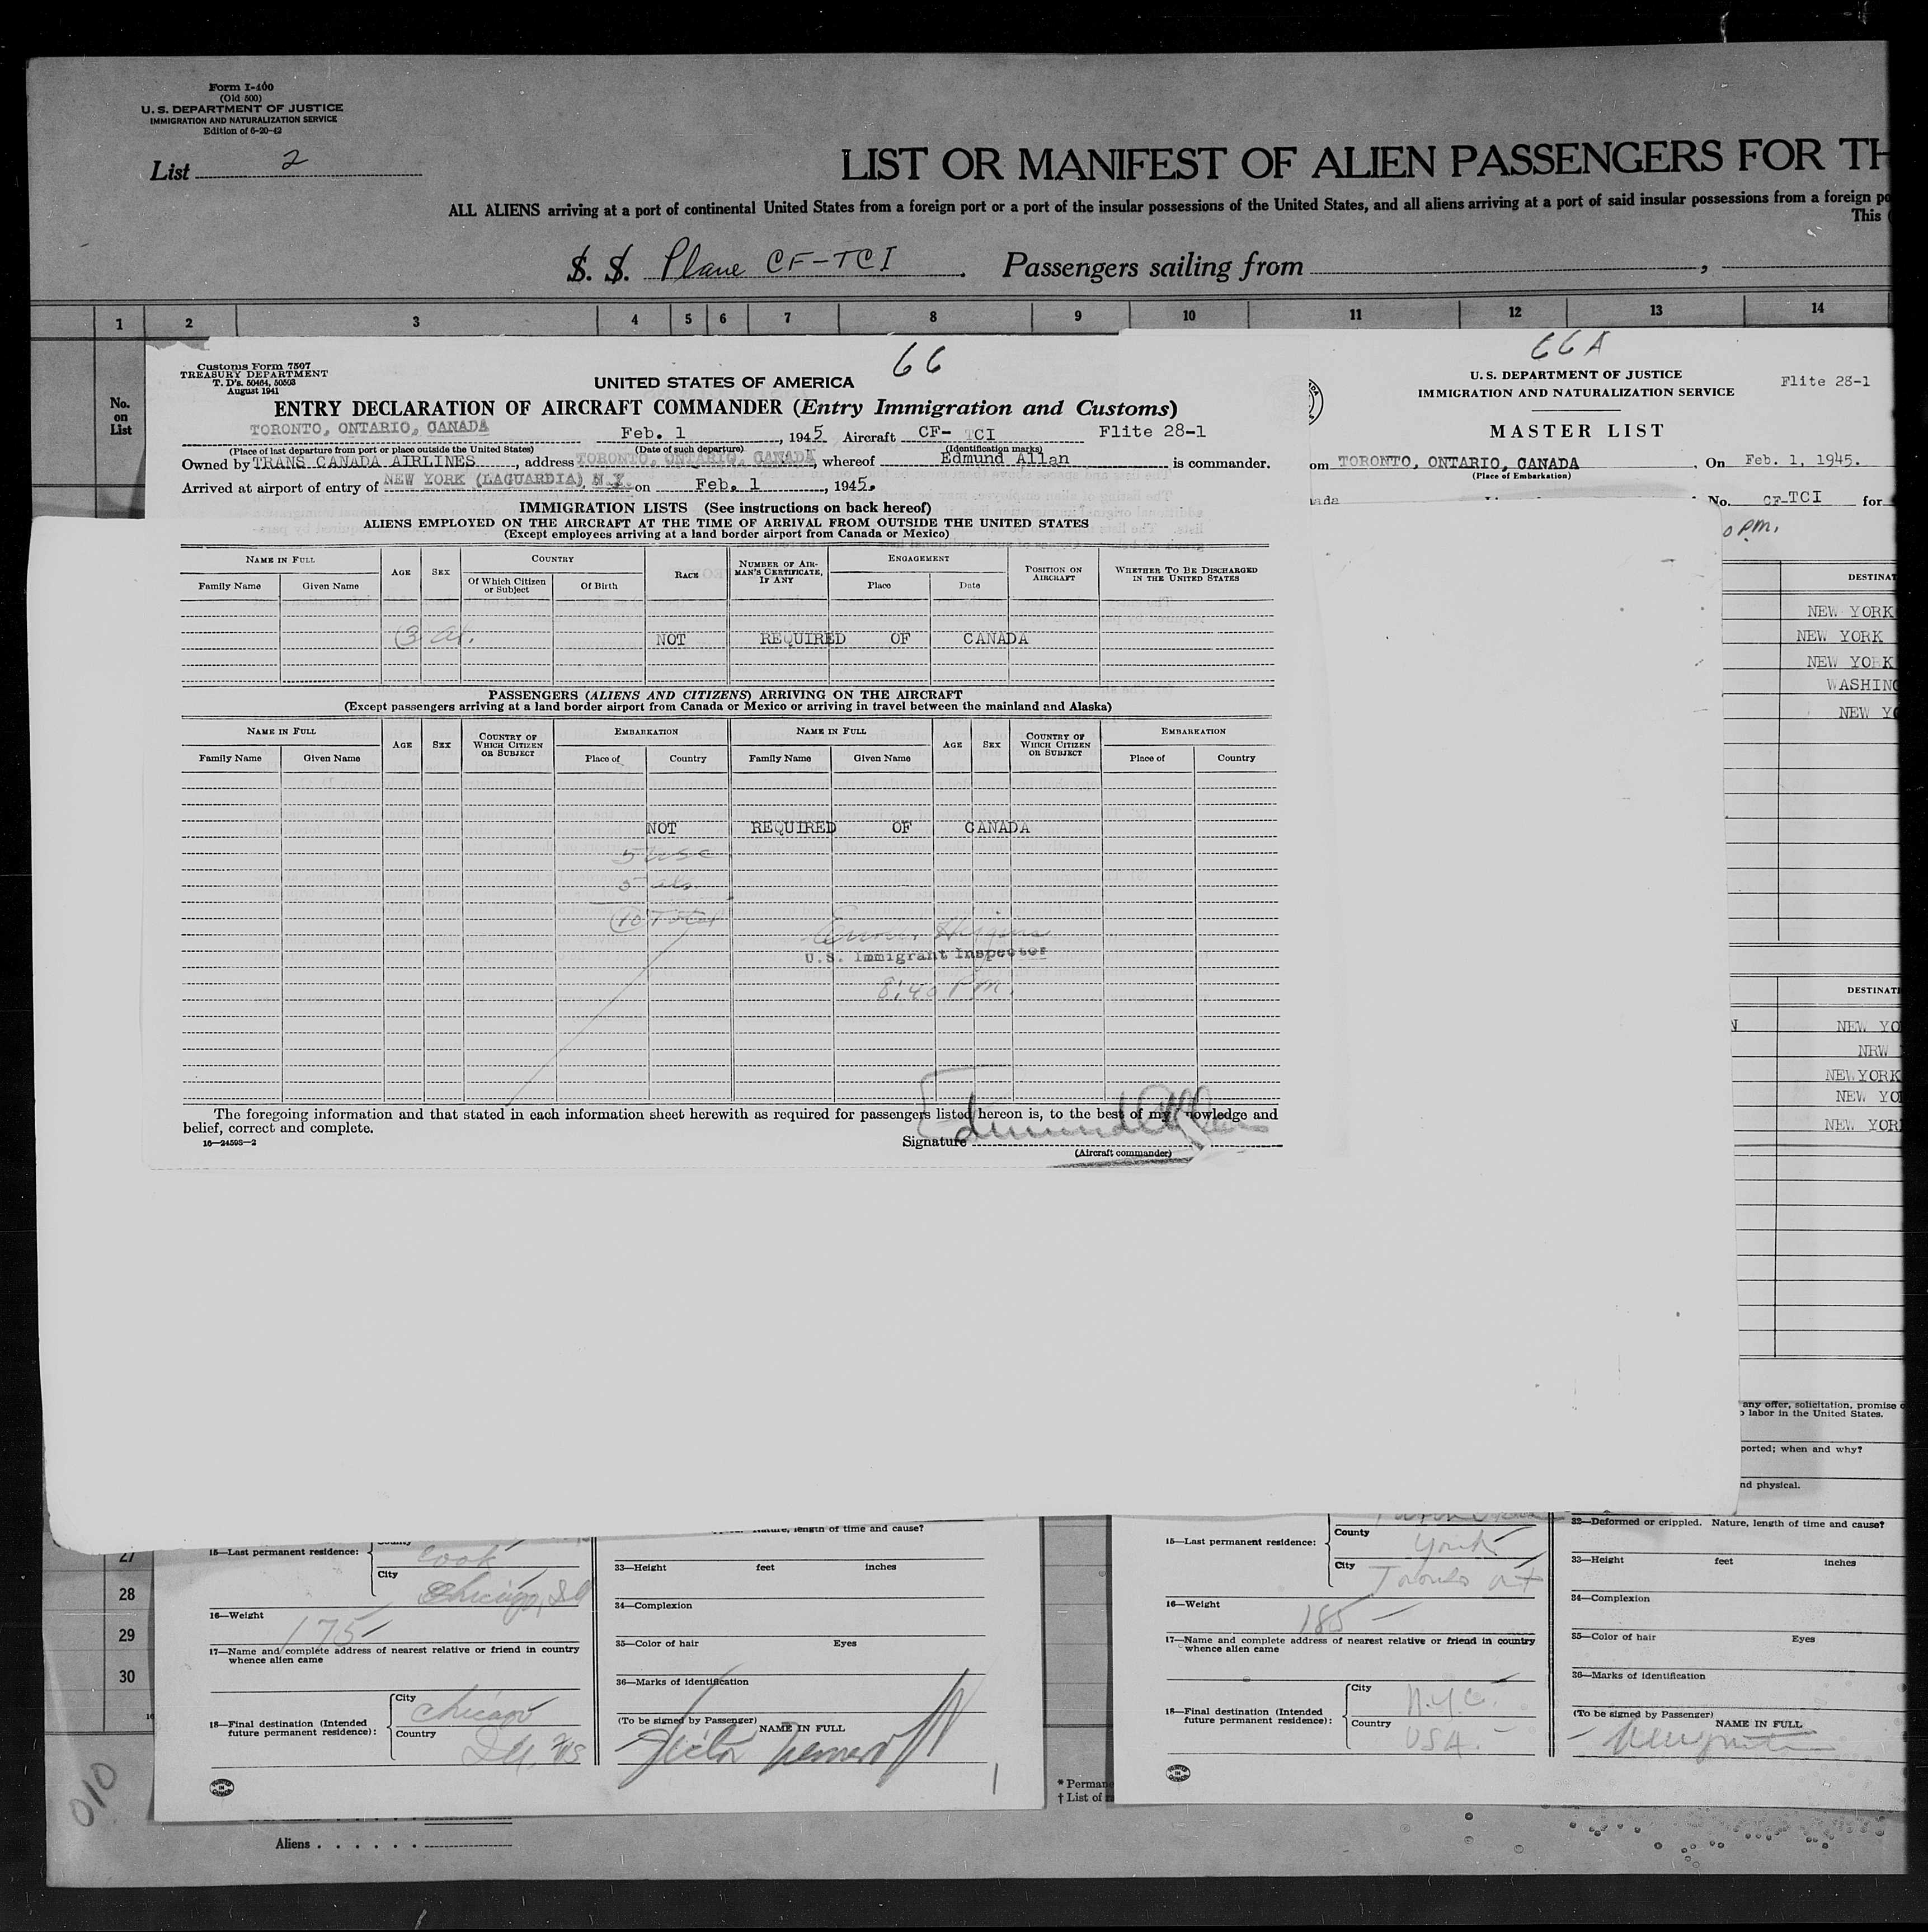 Form I-400
(Old 500)
U. S. DEPARTMENT OF JUSTICE
IMMIGRATION AND NATURALIZATION SERVICE
Edition of 6-20-42
List 2
LIST OR MANIFEST OF ALIEN PASSENGERS FOR TH
ALL ALIENS arriving at a port of continental United States from a foreign port or a port of the insular possessions of the United States, and all aliens arriving at a port of said insular possessions from a foreign po
This (
S. S. Plane CF-TCI . Passengers sailing from ,
1 2 3 4 5 6 7 8 9 10 11 12 13 14
No. on List
66
Customs Form 7507
TREASURY DEPARTMENT
T. D's. 50464, 50503
August 1941
UNITED STATES OF AMERICA
ENTRY DECLARATION OF AIRCRAFT COMMANDER (Entry Immigration and Customs)
TORONTO, ONTARIO, CANADA Feb. 1 , 1945 Aircraft CF- TCI Flite 28-1
(Place of last departure from port or place outside the United States) (Date of such departure) (Identification marks)
Owned by TRANS CANADA AIRLINES , address TORONTO, ONTARIO, CANADA, whereof Edmund Allan is commander.
Arrived at airport of entry of NEW YORK (LAGUARDIA) N.Y. on Feb. 1 , 1945.
IMMIGRATION LISTS (See instructions on back hereof)
ALIENS EMPLOYED ON THE AIRCRAFT AT THE TIME OF ARRIVAL FROM OUTSIDE THE UNITED STATES
(Except employees arriving at a land border airport from Canada or Mexico)
NAME IN FULL AGE SEX COUNTRY RACE NUMBER OF AIRMAN'S CERTIFICATE, IF ANY ENGAGEMENT POSITION ON AIRCRAFT WHETHER TO BE DISCHARGED IN THE UNITED STATES
Family Name Given Name Of Which Citizen or Subject Of Birth Place Date
3 al. NOT REQUIRED OF CANADA
PASSENGERS (ALIENS AND CITIZENS) ARRIVING ON THE AIRCRAFT
(Except passengers arriving at a land border airport from Canada or Mexico or arriving in travel between the mainland and Alaska)
NAME IN FULL AGE SEX COUNTRY OF WHICH CITIZEN OR SUBJECT EMBARKATION NAME IN FULL AGE SEX COUNTRY OF WHICH CITIZEN OR SUBJECT EMBARKATION
Family Name Given Name Place of Country Family Name Given Name Place of Country
NOT REQUIRED OF CANADA
5 usc
5 als.
10 Total
U.S. Immigrant Inspector
8:40 P.m.
The foregoing information and that stated in each information sheet herewith as required for passengers listed hereon is, to the best of my knowledge and
belief, correct and complete.
16—24593-2
Signature Edmund Allan
(Aircraft commander)
66A
U. S. DEPARTMENT OF JUSTICE
IMMIGRATION AND NATURALIZATION SERVICE
Flite 28-1
MASTER LIST
om TORONTO, ONTARIO, CANADA , On Feb. 1, 1945.
(Place of Embarkation)
ada No. CF-TCI for
0 P.M.
DESTINAT
NEW YORK
NEW YORK
NEW YORK
WASHING
NEW YO
DESTINATI
N NEW YO
NRW
NEWYORK
NEW YO
NEW YOR
any offer, solicitation, promise o
o labor in the United States.
ported; when and why?
nd physical.
27
28
29
30
15—Last permanent residence:
County Cook
City Chicago, Ill
16—Weight 175
17—Name and complete address of nearest relative or friend in country
whence alien came
18—Final destination (Intended
future permanent residence):
City Chicago
Country Ill. US
Nature, length of time and cause?
33—Height feet inches
34—Complexion
35—Color of hair Eyes
36—Marks of identification
(To be signed by Passenger) NAME IN FULL
Victor
1
* Permane
† List of ra
15—Last permanent residence:
County York
City Toronto Ont
16—Weight 185
17—Name and complete address of nearest relative or friend in country
whence alien came
18—Final destination (Intended
future permanent residence):
City N.Y.C.
Country USA.
32—Deformed or crippled. Nature, length of time and cause?
33—Height feet inches
34—Complexion
35—Color of hair Eyes
36—Marks of identification
(To be signed by Passenger) NAME IN FULL
010
Aliens . . . . . .